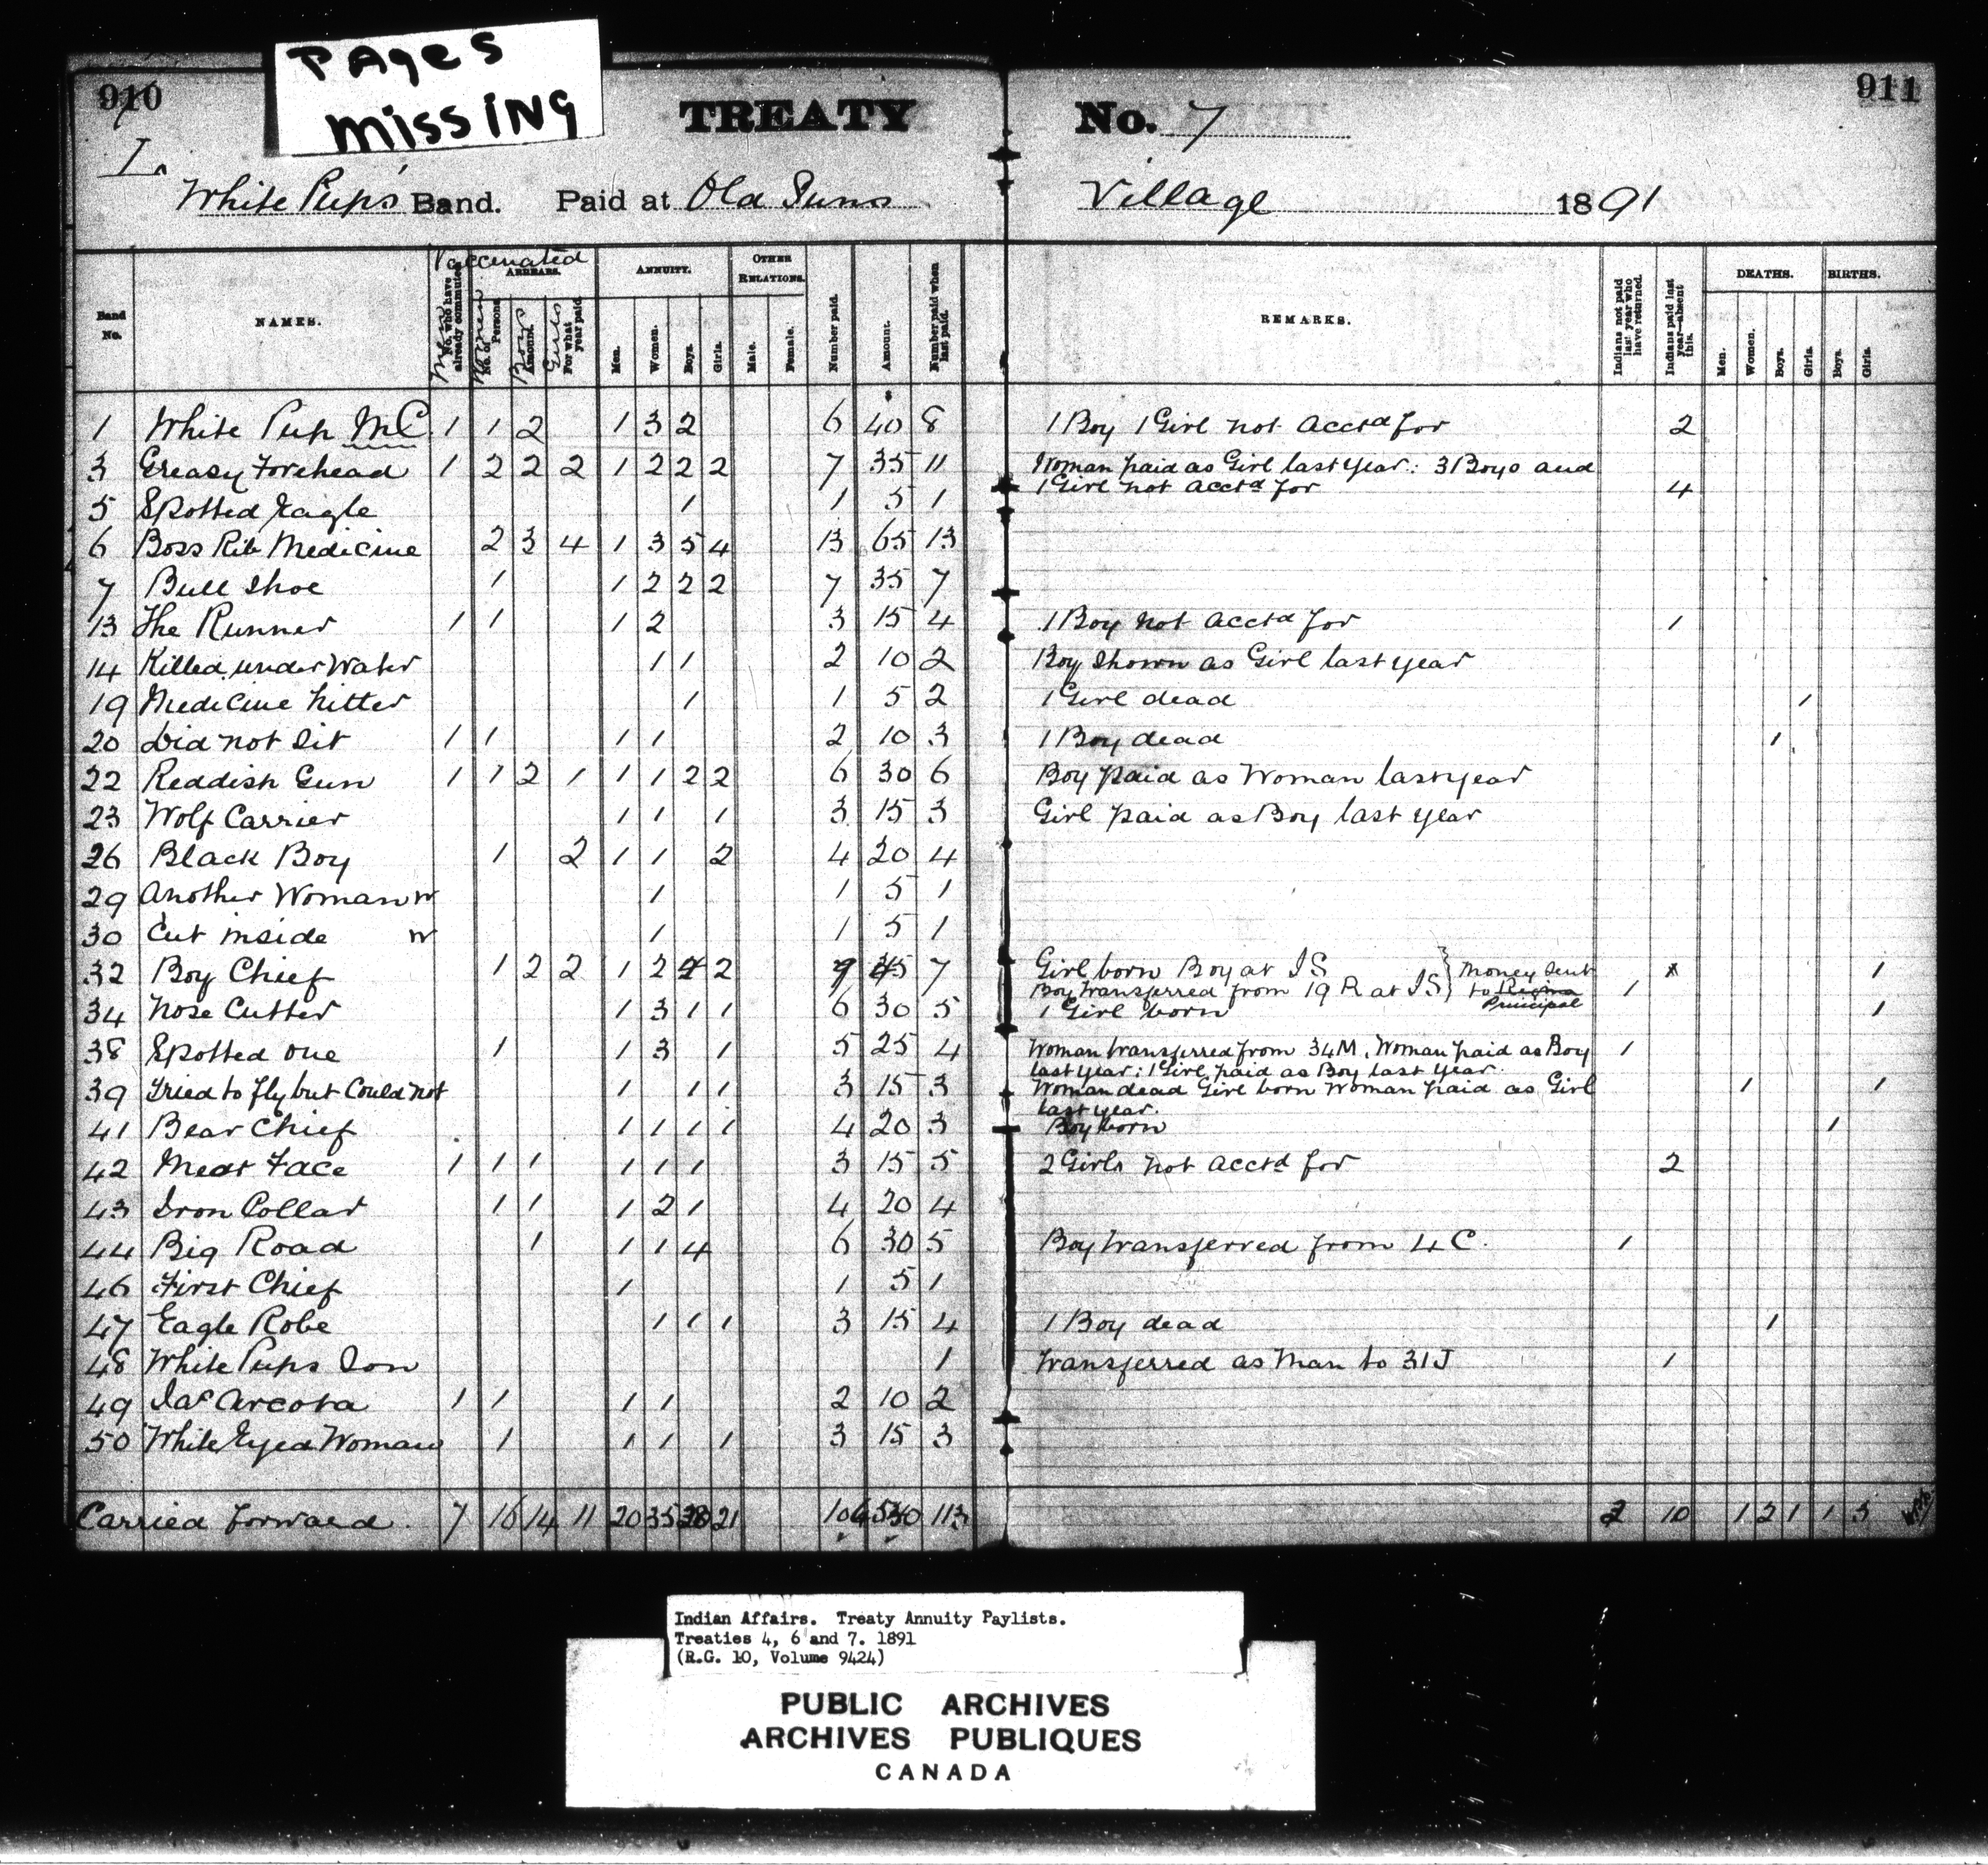 PAges
missing
910
911
TREATY No. 7
L.
White Pup's Band. Paid at Old Suns Village 1891
Vaccinated
Men Women Boys Girls
Band No. NAMES. No. who have already commuted. ARREARS. No. of Persons Amount. For what year paid. ANNUITY. Men. Women. Boys. Girls. OTHER RELATIONS. Male. Female. Number paid. Amount. Number paid when last paid. REMARKS. Indians not paid last year who have returned. Indians paid last year—absent this. DEATHS. Men. Women. Boys. Girls. BIRTHS. Boys. Girls.
$
1 White Pup M.C. 1 1 2 1 3 2 6 40 8 1 Boy 1 Girl not Acctd for 2
3 Greasy Forehead 1 2 2 2 1 2 2 2 7 35 11 Woman paid as Girl last year: 3 Boys and
1 Girl not Acctd for 4
5 Spotted Eagle 1 1 5 1
6 Boss Rib Medicine 2 3 4 1 3 5 4 13 65 13
7 Bull Shoe 1 1 2 2 2 7 35 7
13 The Runner 1 1 1 2 3 15 4 1 Boy not acctd for 1
14 Killed under Water 1 1 2 10 2 Boy shown as Girl last year
19 Medicine hitter 1 1 5 2 1 Girl dead 1
20 Did not Sit 1 1 1 1 2 10 3 1 Boy dead 1
22 Reddish Gun 1 1 2 1 1 1 2 2 6 30 6 Boy paid as Woman last year
23 Wolf Carrier 1 1 1 3 15 3 Girl paid as Boy last year
26 Black Boy 1 2 1 1 2 4 20 4
29 Another Woman W 1 1 5 1
30 Cut inside W 1 1 5 1
32 Boy Chief 1 2 2 1 2 4 2 9 45 7 Girl born Boy at IS } Money sent x 1
Boy transferred from 19 R at IS } to Regina Principal 1
34 Nose Cutter 1 3 1 1 6 30 5 1 Girl born 1
38 Spotted one 1 1 3 1 5 25 4 Woman transferred from 34M. Woman paid as Boy 1
last year: 1 Girl paid as Boy last year.
39 Tried to fly but Could not 1 1 1 3 15 3 Woman dead Girl born Woman paid as Girl 1 1
last year.
41 Bear Chief 1 1 1 1 4 20 3 Boy born 1
42 Meat Face 1 1 1 1 1 1 3 15 5 2 Girls not acctd for 2
43 Iron Collar 1 1 1 2 1 4 20 4
44 Big Road 1 1 1 4 6 30 5 Boy transferred from 4 C. 1
46 First Chief 1 1 5 1
47 Eagle Robe 1 1 1 3 15 4 1 Boy dead 1
48 White Pups Son 1 Transferred as Man to 31 J 1
49 Jas Arcota 1 1 1 1 2 10 2
50 White Eyed Woman 1 1 1 1 3 15 3
Carried forward 7 16 14 11 20 35 28 21 106 530 113 2 10 1 2 1 1 3
Indian Affairs. Treaty Annuity Paylists.
Treaties 4, 6 and 7. 1891
(R.G. 10, Volume 9424)
PUBLIC ARCHIVES
ARCHIVES PUBLIQUES
CANADA